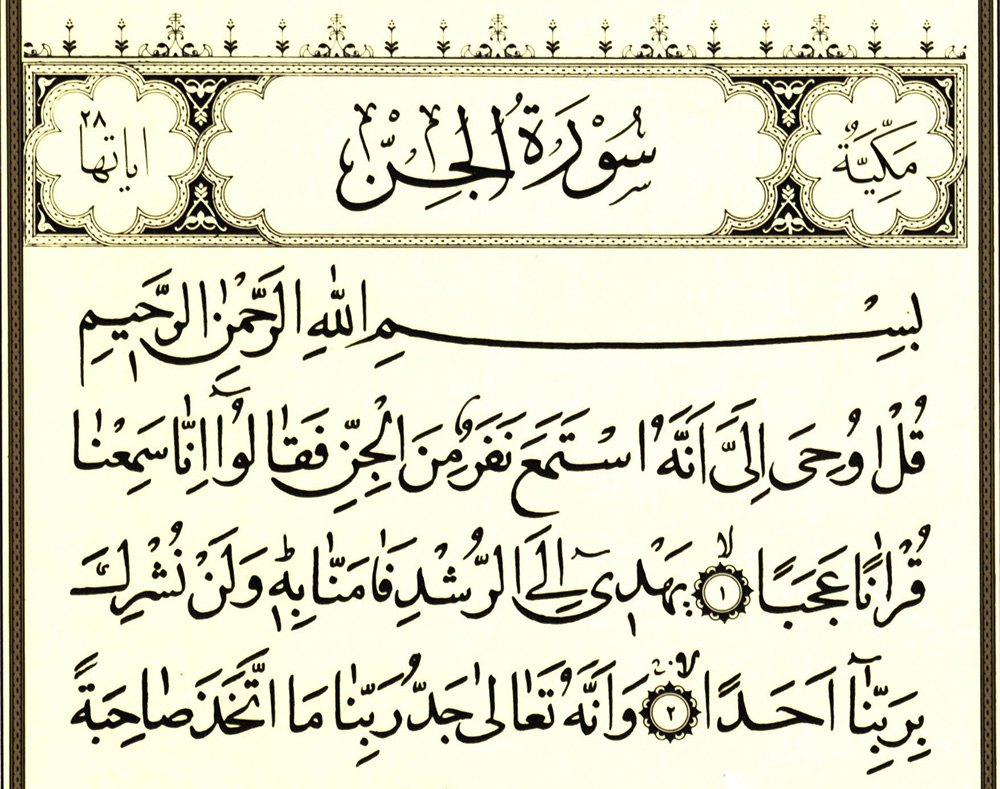 مَكِّيَّةٌ سُوْرَةُ الْجِنِّ اٰيَاتُهَا ٢٨
بِسْمِ اللّٰهِ الرَّحْمٰنِ الرَّحِيْمِ
قُلْ اُوْحِىَ اِلَىَّ اَنَّهُ اسْتَمَعَ نَفَرٌ مِنَ الْجِنِّ فَقَالُوْٓا اِنَّا سَمِعْنَا
قُرْاٰنًا عَجَبًا ۙ ١ يَهْدِىْٓ اِلَى الرُّشْدِ فَاٰمَنَّا بِهٖ وَلَنْ نُشْرِكَ
بِرَبِّنَٓا اَحَدًا ۙ ٢ وَاَنَّهُ تَعَالٰى جَدُّ رَبِّنَا مَا اتَّخَذَ صَاحِبَةً